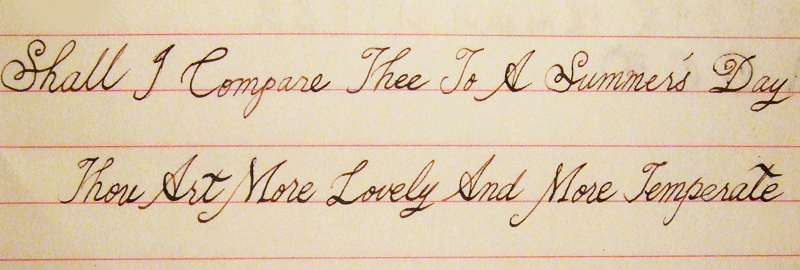 Shall I Compare Thee To A Summer's Day
Thou Art More Lovely And More Temperate